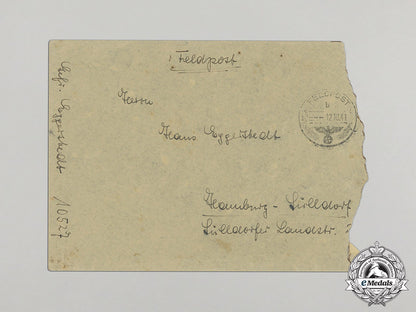 "Feldpost"
Herrn
Hans Eggerstedt
Hamburg - Sülldorf
Sülldorfer Landstr.
Gefr. Eggerstedt 10527
FELDPOST
b
12.10.41
eMedals